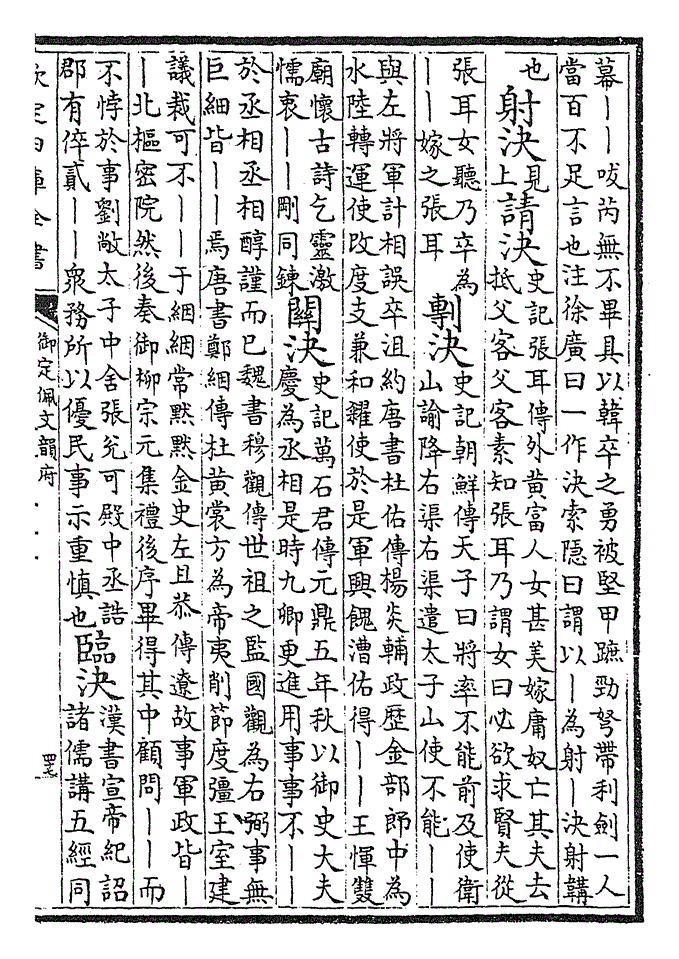 幕｜｜㕹芮無不畢具以韓卒之勇被堅甲蹠勁弩帶利劍一人
當百不足言也注徐廣曰一作決索隱曰謂以｜為射｜決射韝
也
射決
見上
請決
史記張耳傳外黃富人女甚美嫁庸奴亡其夫去
抵父客父客素知張耳乃謂女曰必欲求賢夫從
張耳女聽乃卒為
｜｜嫁之張耳
剸決
史記朝鮮傳天子曰將率不能前及使衛
山諭降右渠右渠遣太子山使不能｜｜
與左將軍計相誤卒沮約唐書杜佑傳楊炎輔政歷金部郎中為
水陸轉運使改度支兼和糴使於是軍興餽漕佑得｜｜王惲雙
廟懷古詩乞靈激
懦衷｜｜剛同鍊
關決
史記萬石君傳元鼎五年秋以御史大夫
慶為丞相是時九卿更進用事事不｜｜
於丞相丞相醇謹而已魏書穆觀傳世祖之監國觀為右弼事無
巨細皆｜｜焉唐書鄭絪傳杜黃裳方為帝夷削節度彊王室建
議裁可不｜｜于絪絪常默默金史左且恭傳遼故事軍政皆｜
｜北樞密院然後奏御柳宗元集禮後序畢得其中顧問｜｜而
不悖於事劉敞太子中舍張兊可殿中丞誥
郡有倅貳｜｜衆務所以優民事示重慎也
臨決
漢書宣帝紀詔
諸儒講五經同
欽定四庫全書
御定佩文韻府
四七